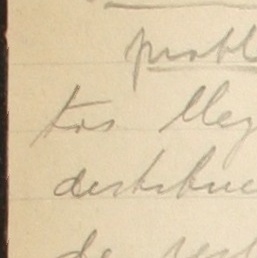 probl
tos lleg
distribuc
de rest